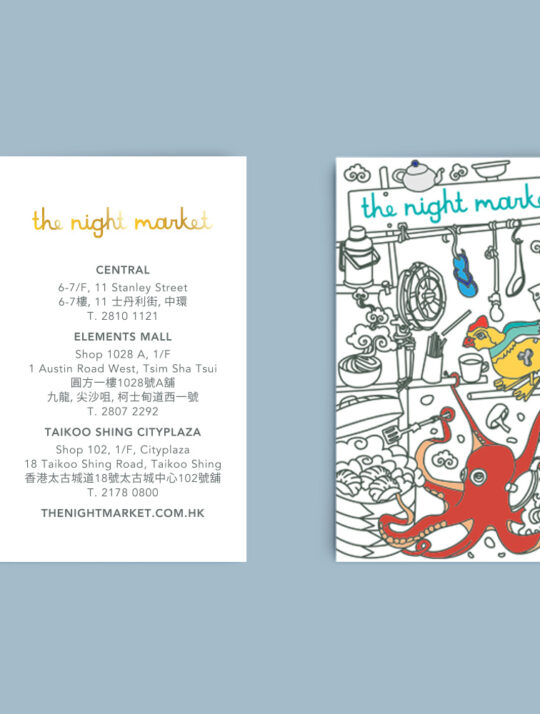 the night market
CENTRAL
6-7/F, 11 Stanley Street
6-7樓, 11 士丹利街, 中環
T. 2810 1121
ELEMENTS MALL
Shop 1028 A, 1/F
1 Austin Road West, Tsim Sha Tsui
圓方一樓1028號A舖
九龍, 尖沙咀, 柯士甸道西一號
T. 2807 2292
TAIKOO SHING CITYPLAZA
Shop 102, 1/F, Cityplaza
18 Taikoo Shing Road, Taikoo Shing
香港太古城道18號太古城中心102號舖
T. 2178 0800
THENIGHTMARKET.COM.HK
the night marke